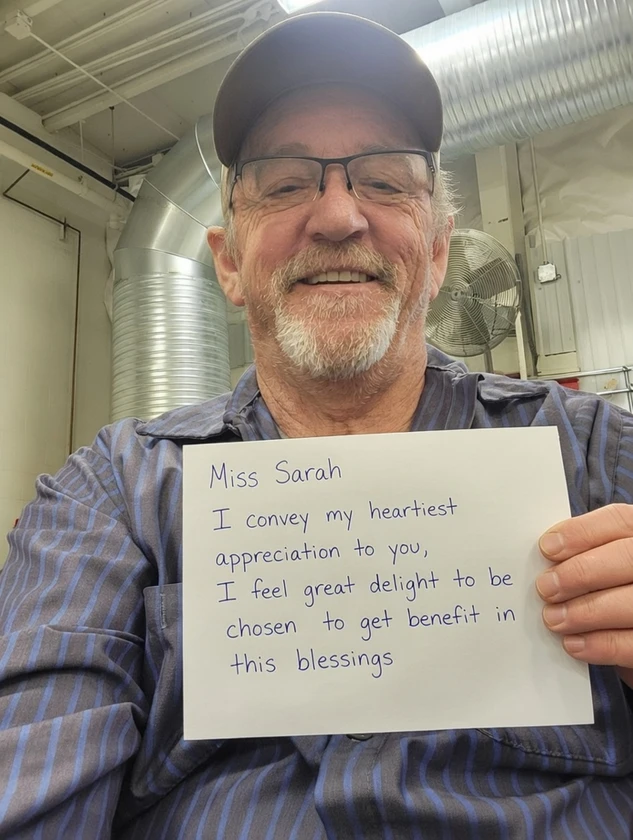 Miss Sarah
I convey my heartiest
appreciation to you,
I feel great delight to be
chosen to get benefit in
this blessings